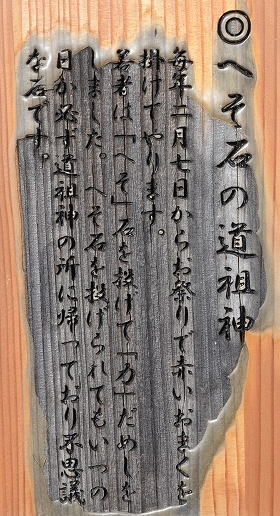 ◎へそ石の道祖神
毎年二月七日からお祭りで赤いおまくを
掛けてやります。
若者は「へそ」石を投げて「力」だめしを
しました。へそ石を投げられてもいつの
日か必ず道祖神の所に帰っており不思議
な石です。